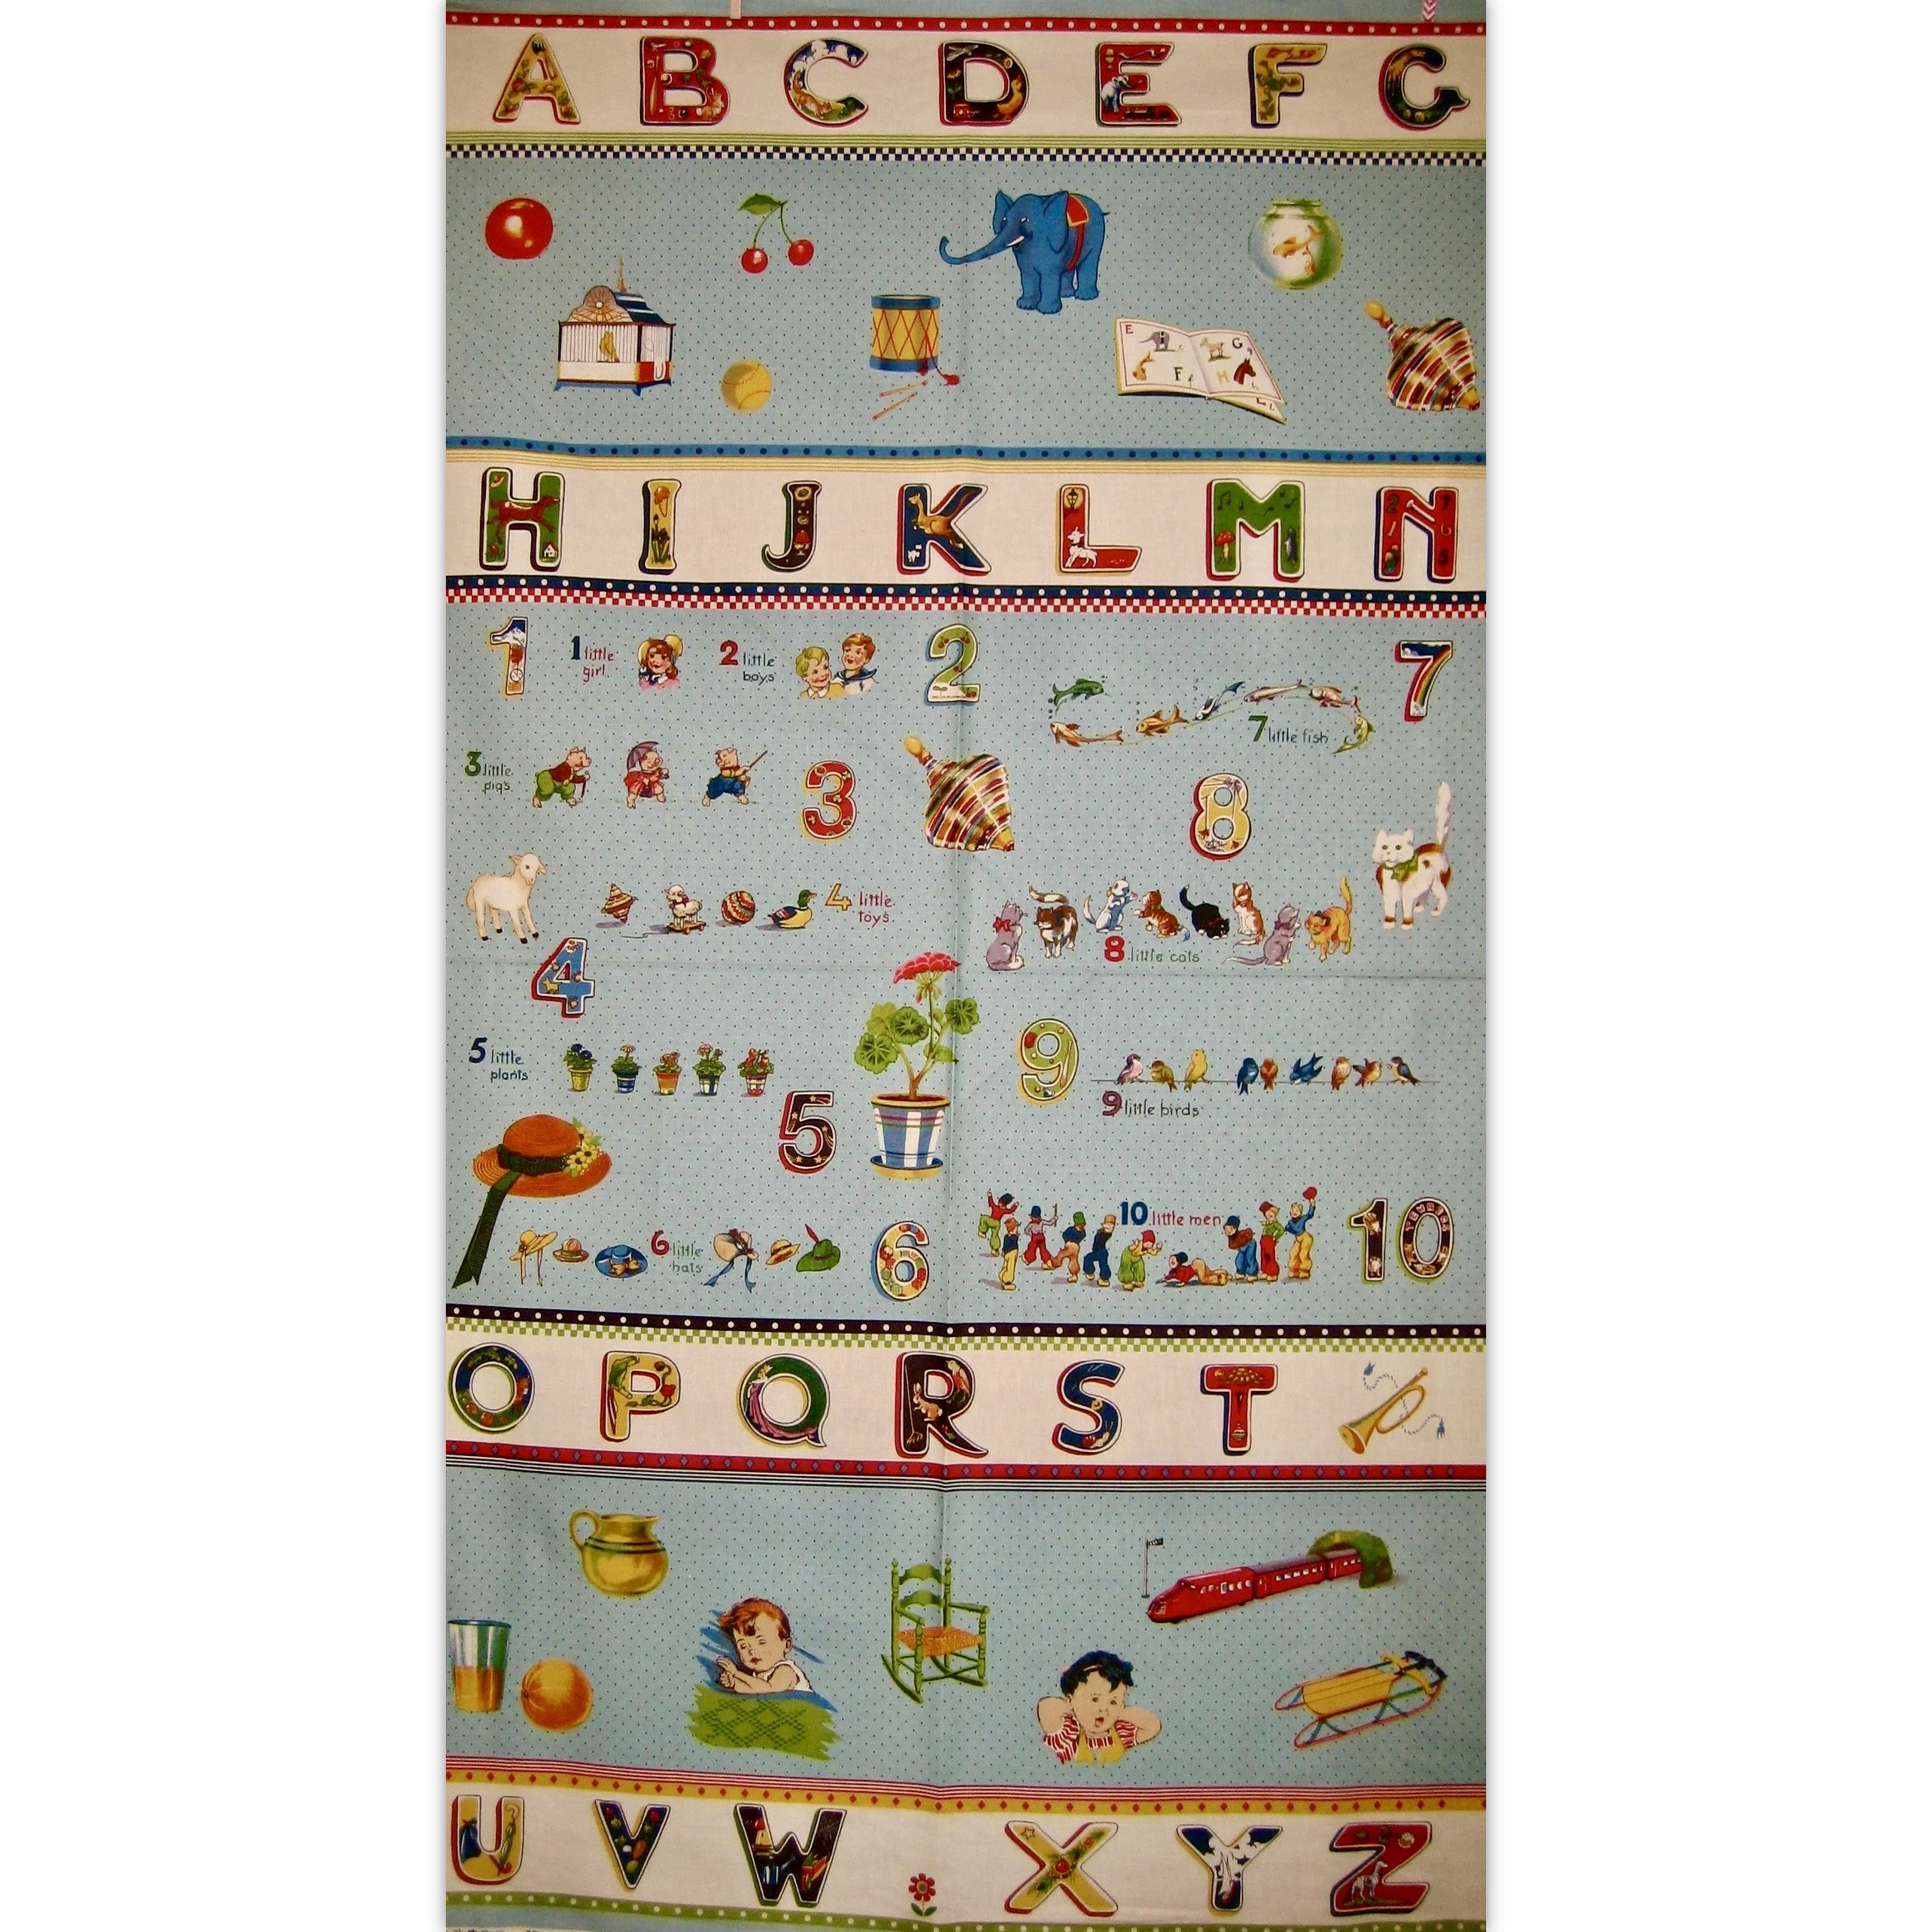 A B C D E F G
E G
F f H
H I J K L M N
1
1 little
girl
2 little
boys
2
7
7 little fish
3 little
pigs
3
8
4 little
toys
8 little cats
4
5 little
plants
9
9 little birds
5
10 little men
10
6 little
hats
6
O P Q R S T
U V W X Y Z